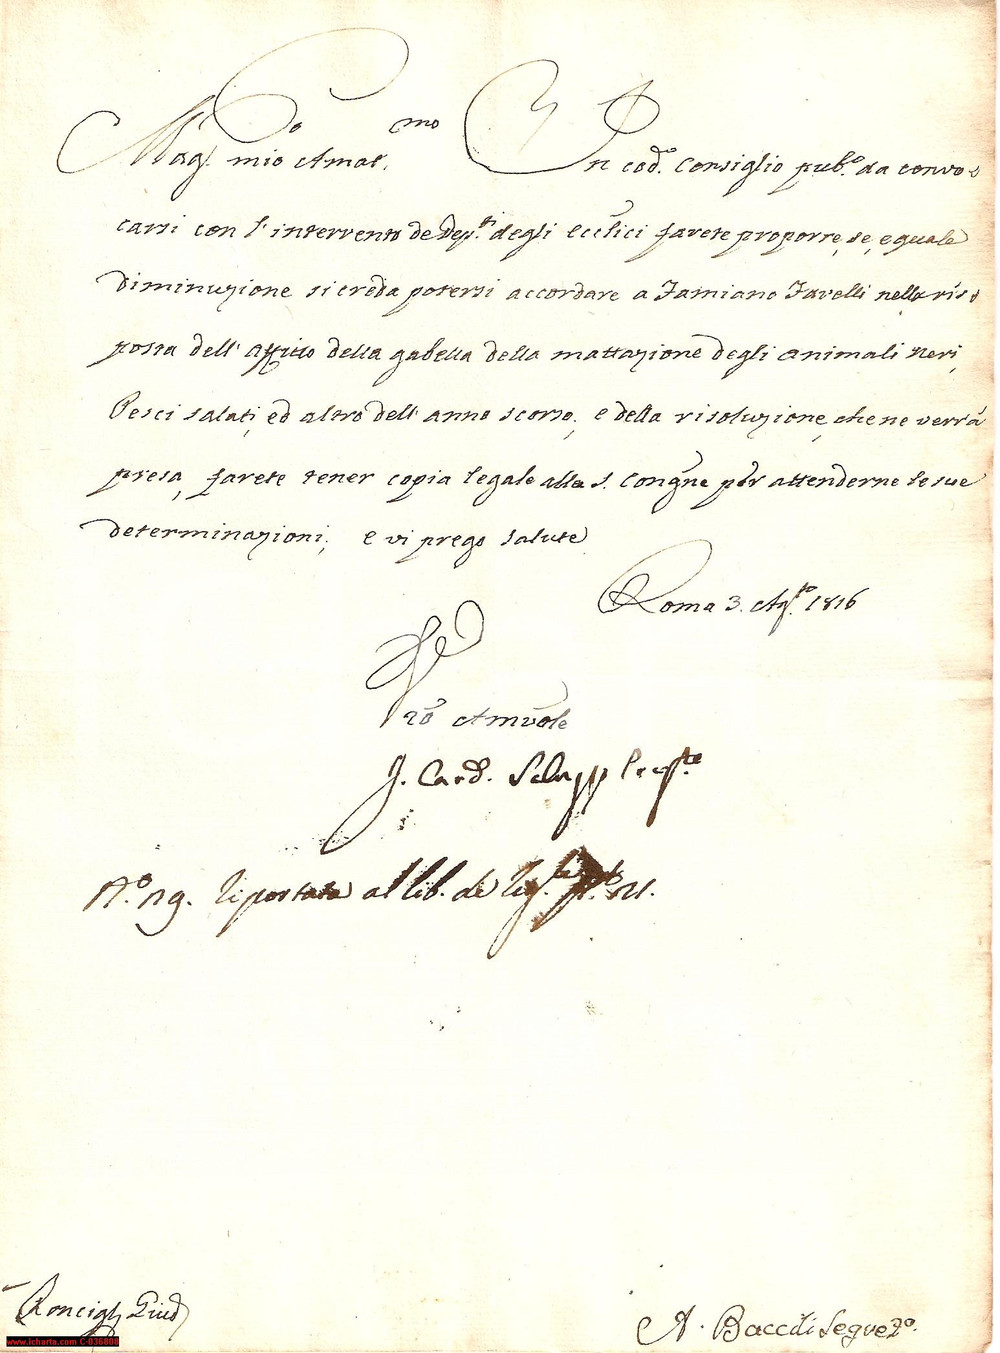 Mag.co mio Amat.mo In cod.o Consiglio pub.o da convo=
carsi con l'intervento de Dep.ti degli Ecclici farete proporre, se, e quale
diminuzione si creda potersi accordare a Famiano Favelli nella ris=
posta dell'Affitto della gabella della mattazione degli animali neri,
Pesci salati, ed altro dell'anno scorso; e della risoluzione, che ne verrà
presa, farete tener copia legale alla S. Congne per attenderne le sue
determinazioni; e vi prego salute
Roma 3. Ag.to 1816
Amvole
J. Card.
N.o riportata al lib. de
Roncigl. Giud.
A. Baccedi Segre.o
www.icharta.com C-036808